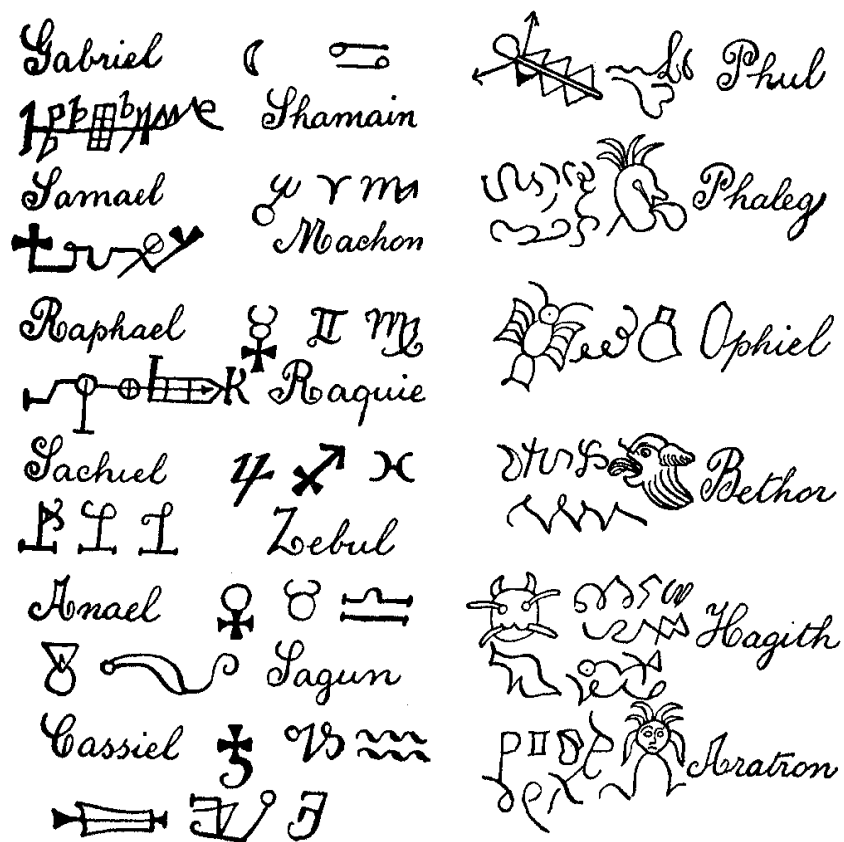 Gabriel
Shamain
Samael
Machon
Raphael
Raquie
Sachiel
Zebul
Anael
Sagun
Cassiel
Phul
Phaleg
Ophiel
Bethor
Hagith
Aratron